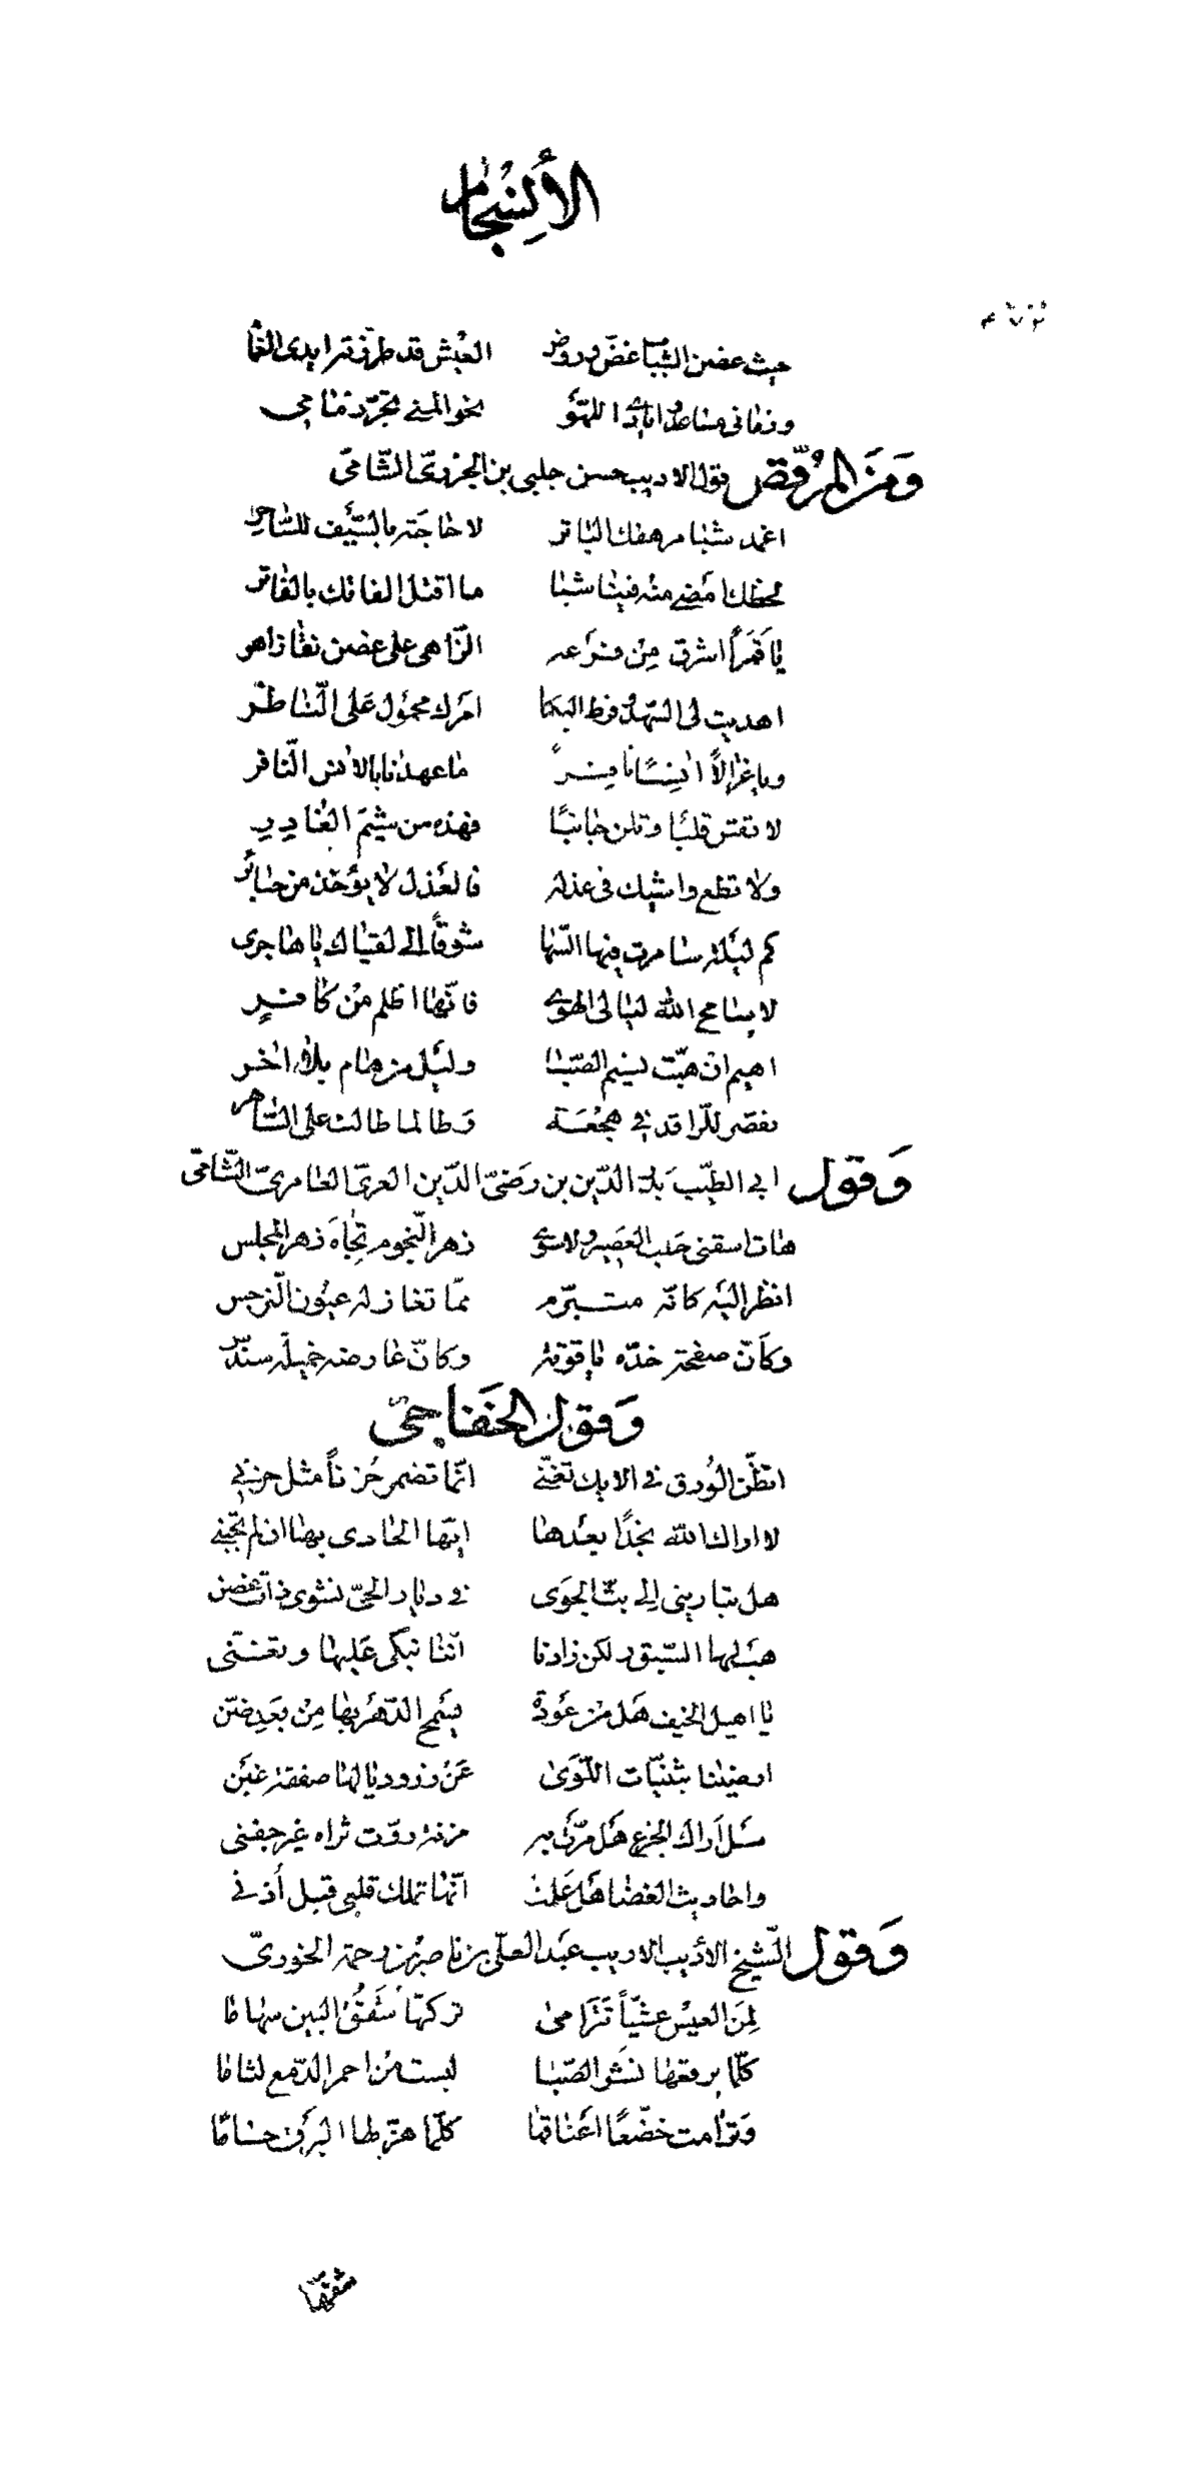 الانسجام
حيث غصن الشباب غض وروض العيش قد طرفته ايدى الغمام
وزمانى مساعد وايادى اللهو نحو المنى تجر زمامى
ومن المرقص قول الاديب حسن جلبى بن الجزرى الشامى
اغمد شبا مرهفك الباتر لا حاجة بالسيف للساحر
لحظك امضى منه فينا شبا ما اقتل الفاتك بالفاتر
يا قمرًا اشرق من فرعه الزاهى على غصن نقا زاهر
اهديت لى السهد وفرط البكا امرك محمول على الناظر
ويا غزالاً انسًا نافرً ما عهدنا بالانس النافر
لا تقس قلبًا وتلن جانبًا فهذه من شيم الغادر
ولا تطع واشيك فى عذله فالعذل لا يؤخذ من جائر
كم ليلة سامرت فيها السها شوقًا الى لقياك يا هاجرى
لا سامح الله ليالى الهوى فانها اظلم من كافرٍ
اهيم ان هبت نسيم الصبا وليل من هام بلا اخر
تقصر للراقد فى هجعة وطالما طالت على الساهر
وقول ابى الطيب بدر الدين بن رضى الدين الغزى العامرى الشامى
هات اسقنى حلب العصير ولا سوى زهر النجوم تجاه زهر المجلس
انظر اليه كانه متبرم مما تغازله عيون النرجس
وكأن صفحة خده ياقوتة وكان عارضه خميلة سندس
وقول الخفاجى
اتظن الورق فى الايك تغنى انما تضمر حزنًا مثل حزنى
لا اراك الله نجدًا بعدها ايها الحادى بها ان لم تجبنى
هل تبارينى الى بث الجوى فى ديار الحى نشوى ذات غصن
هب لها السبق ولكن زادنا اننا نبكى عليها وتغنى
يا اهيل الخيف هل من عودة يسمح الدهر بها من بعد ضن
ارضينا بثنيات اللوى عن زرود يا لها صفقة غبن
سل اراك الجزع هل مرت به مزنة روت ثراه غير جفنى
واحاديث الغضا هل علمت انها تملك قلبى قبل أذنى
وقول الشيخ الاديب الاديب عبد العلى بن ناصر بن رحمة الحويزى
لمن العيس عشيًا تترامى تركتها شقق البين سهاما
كلما برقعها نشو الصبا لبست من احمر الدمع لثاما
وترامت خضعًا اعناقها كلما هز لها البرق حساما